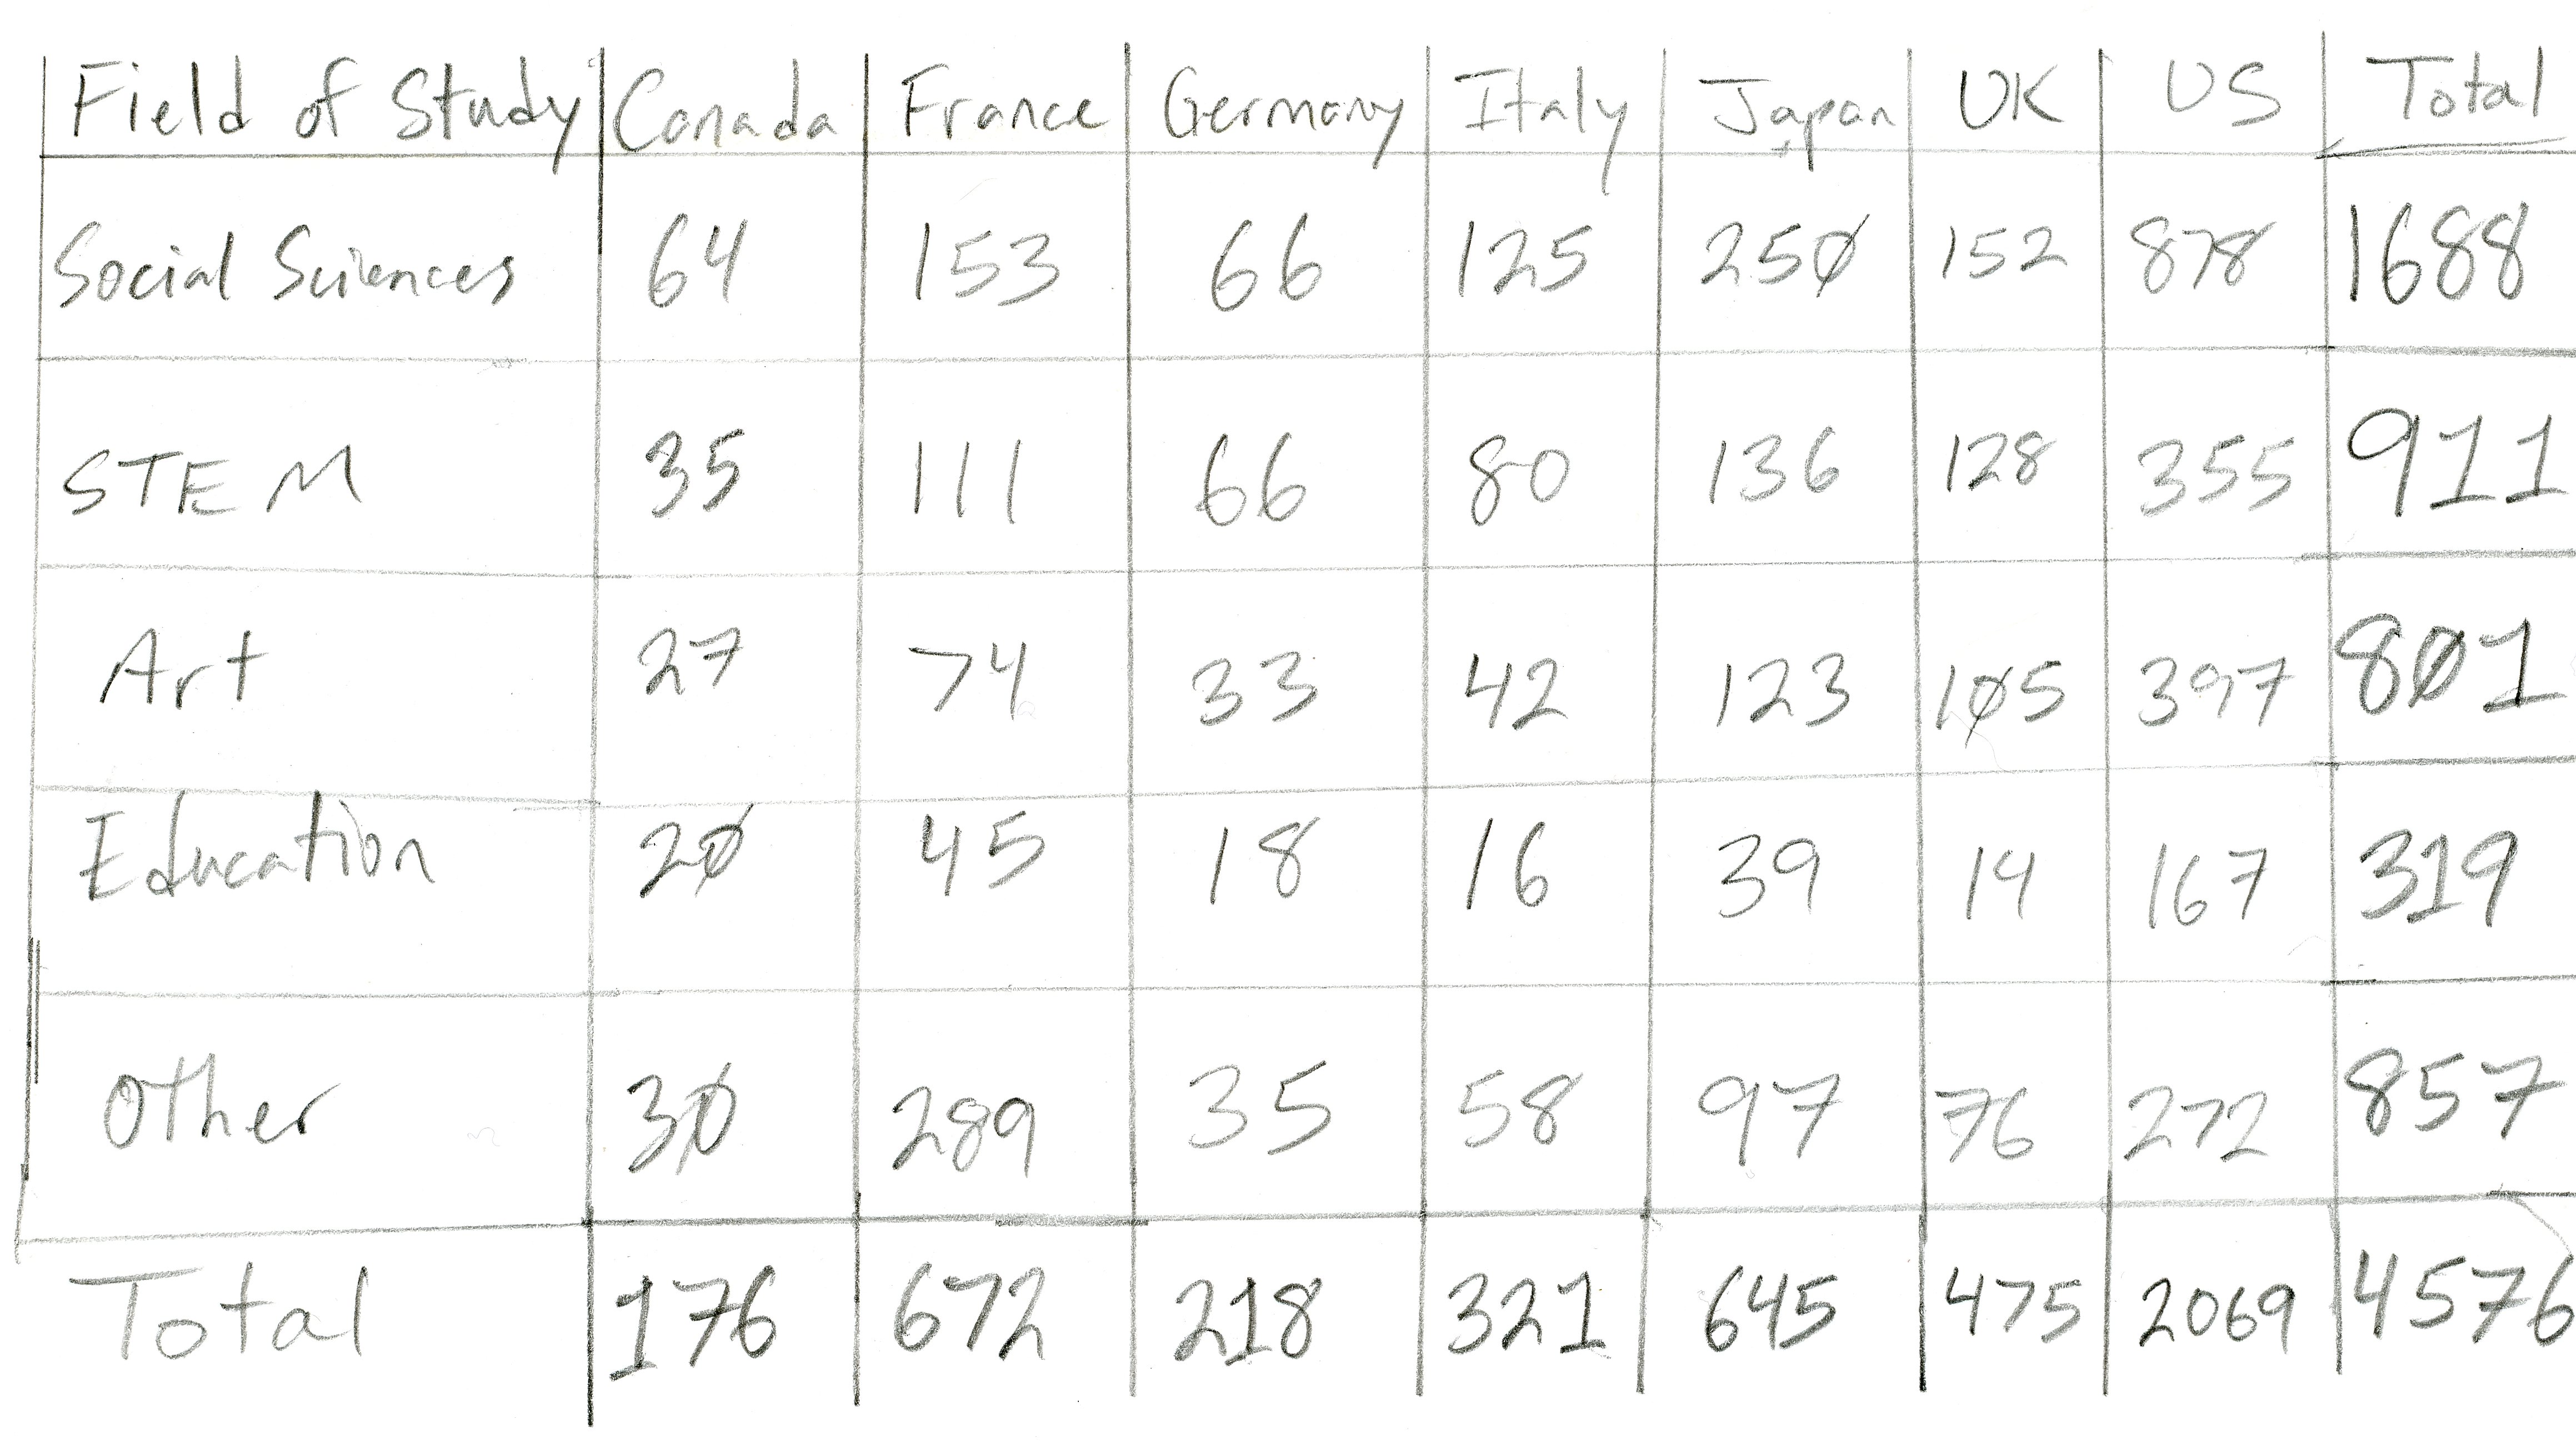 Field of Study Canada France Germany Italy Japan UK US Total
Social Sciences 64 153 66 125 250 152 878 1688
STEM 35 111 66 80 136 128 355 911
Art 27 74 33 42 123 105 397 801
Education 20 45 18 16 39 14 167 319
Other 30 289 35 58 97 76 272 857
Total 176 672 218 321 645 475 2069 4576